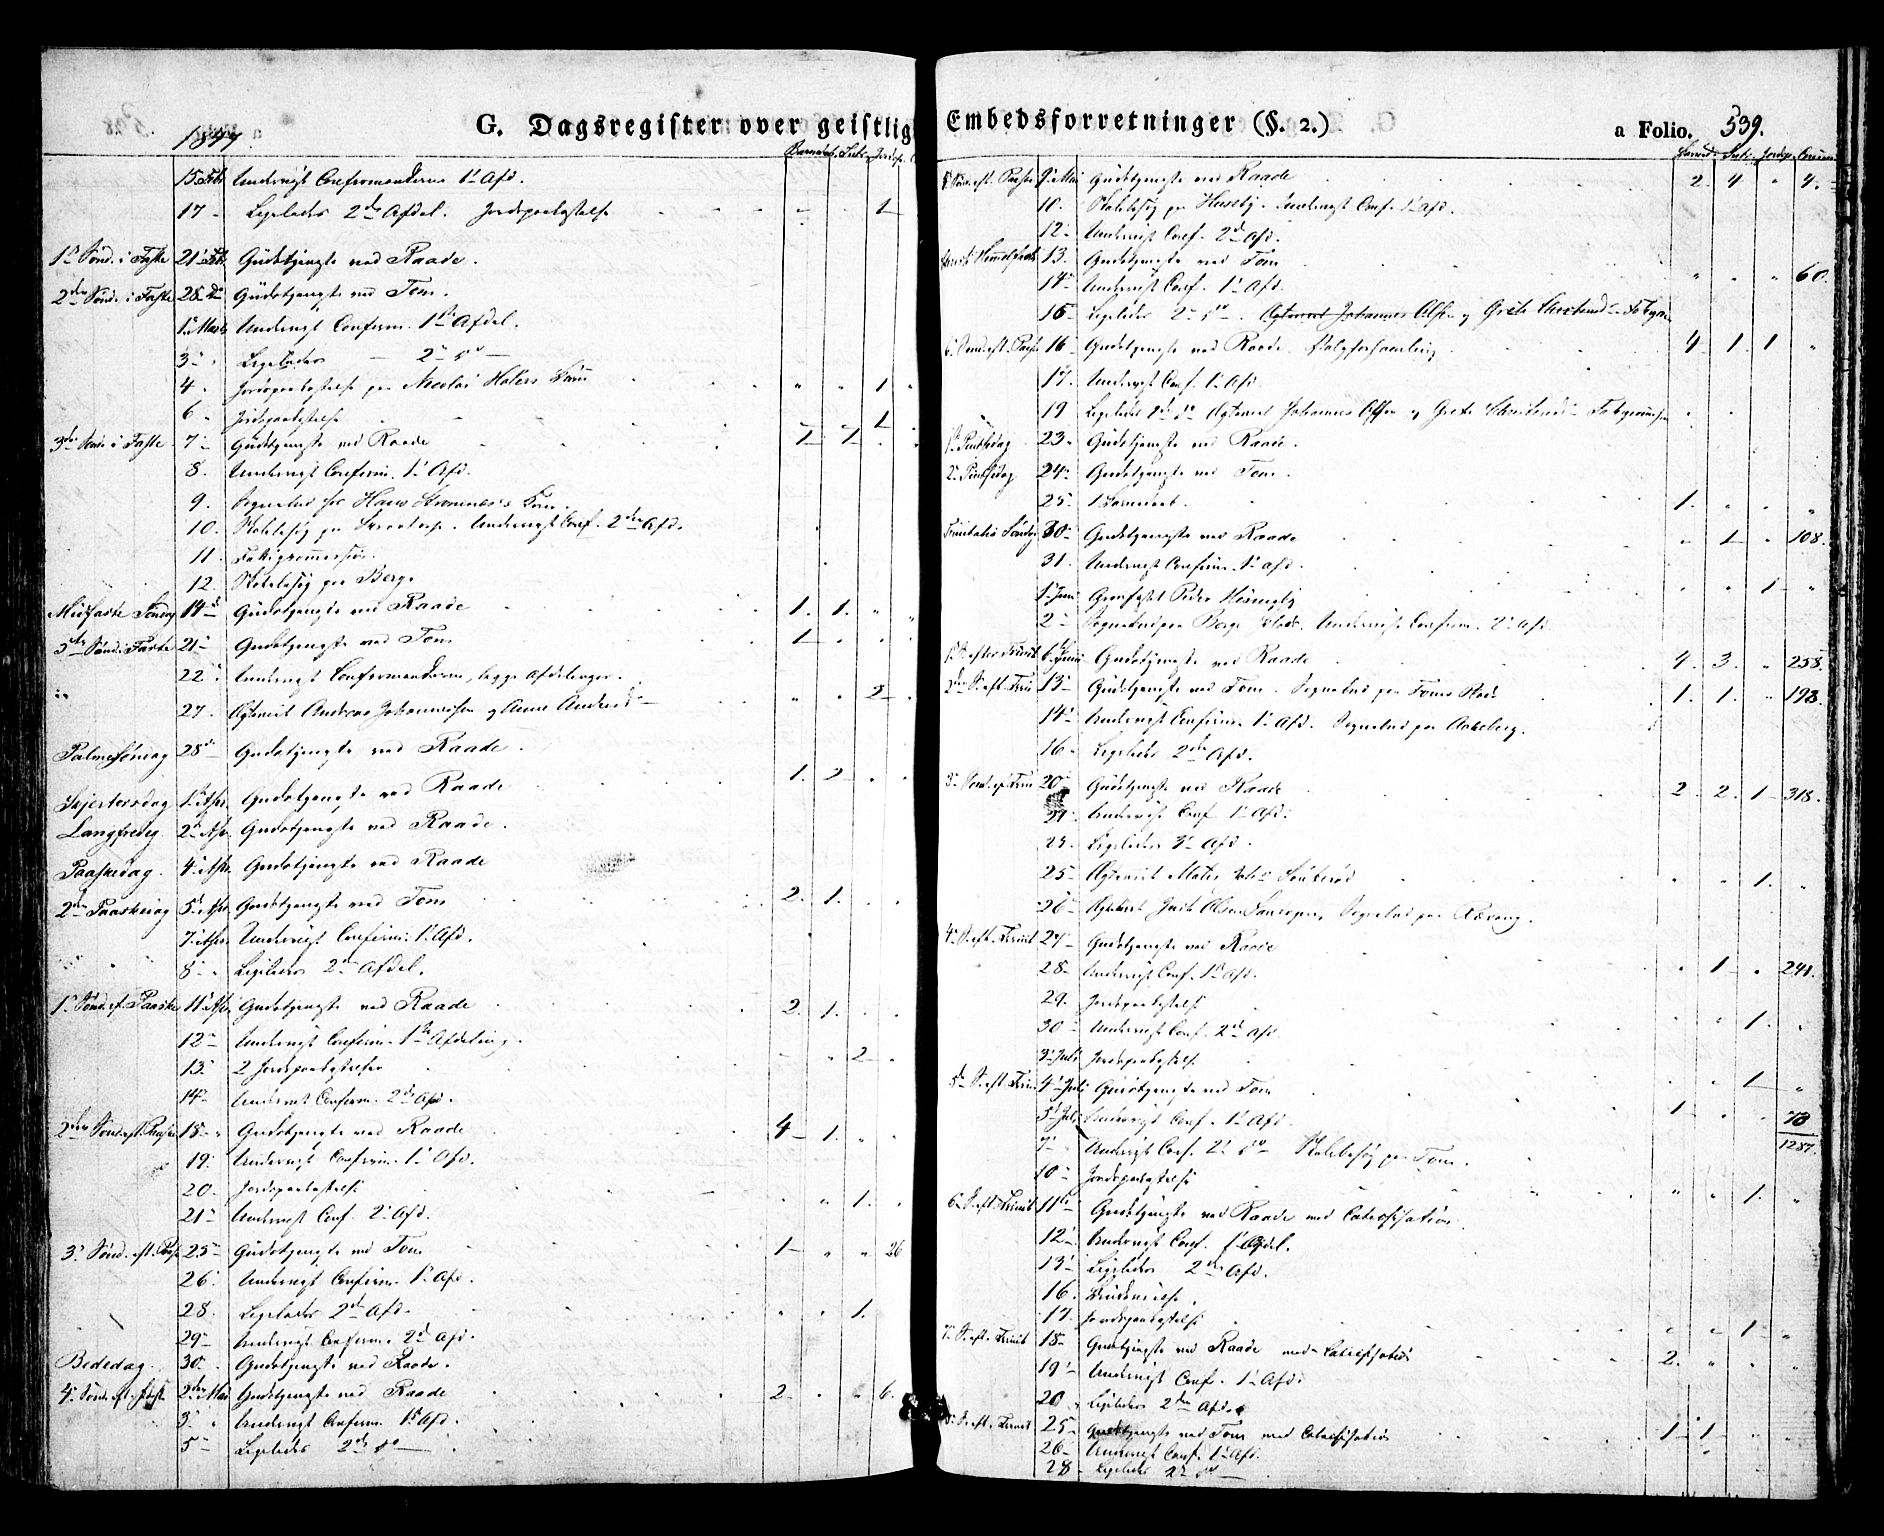 1847.
G. Dagsregister over geistlig
Barnedåb. Intr. Jordsp.
15 Febr Undervigt Confirmanderne 1ste Afd.
17 - Ligeledes 2den Afdel. Jordpaakastelse 1
1ste Sønd. i Faste 21 Febr. Gudstjeneste ved Raade.
2den Sønd. i Faste 28 do Gudstjeneste ved Tom.
1 Marts Undervigt Confirm. 1ste Afdel.
3 - Ligeledes 2den do
4 - Jordpaakastelse paa Nicolai Holers Barn " " 1
6 - Jordpaakastelse 1
3die Sønd. i Faste 7 - Gudstjeneste ved Raade 1 1
8. Undervigt Confirm. 1ste Afd.
9.
10. Skolebesøg paa Undervigt Conf. 2den Afd.
11. Fattigcommission.
12. Skolebesøg paa Berg.
Midfaste Søndag 14 - Gudstjeneste ved Raade 1. 1. "
5te Sønd. i Faste 21 - Gudstjeneste ved Tom 1
22 - Undervigt Confirmanderne, begge Afdelinger.
27. Ægteviet Andreas Johannesen og Anne Andersd. " " 2
Palmesøndag 28 - Gudstjeneste ved Raade 1. 2
Skjertorsdag 1 Apr. Gudstjeneste ved Raade
Langfredag 2 Apr. Gudstjeneste ved Raade.
Paaskedag. 4 Apr. Gudstjeneste ved Raade
2den Paaskedag 5 Apr. Gudstjeneste ved Tom 2. 1.
7 Apr. Undervigt Confirm. 1ste Afd.
8 - Ligeledes 2den Afdel.
1ste Sønd. ef. Paaske 11 Apr. Gudstjeneste ved Raade 2. 1.
12 - Undervigt Confirm. 1ste Afdeling.
13. 2 Jordpaakastelser " 2
14 - Undervigt Confirm. 2den Afd.
2den Sønd. eft. Paaske 18 - Gudstjeneste ved Raade 4 1.
19. Undervigt Confirm. 1ste Afd.
20. Jordpaakastelse " 1.
21 - Undervigt Conf. 2den Afd.
3die Sønd. eft. Paaske 25 - Gudstjeneste ved Tom 1 " " 26
26. Undervigt Confirm. 1ste Afd.
28. Ligeledes 2den Afd. " " 1.
29 - Undervigt Confirm. 2den Afd.
Bededag. 30. Gudstjeneste ved Raade.
4de Sønd. ef. Paaske 2den Mai Gudstjeneste ved Raade 2 " 6.
3 - Undervigt Confirm. 1ste Afd.
5 - Ligeledes 2den do
Embedsforretninger (§. 2.)
a Folio. 539.
Barned. Intr. Jordsp. Commun.
5 Sønd. eft. Paaske 9 Mai Gudstjeneste ved Raade 2. 4 " 4.
10. Skolebesøg paa Huseby. Undervigt Conf. 1ste Afd.
12. Undervigt Conf. 2den Afd.
Christi Himmelfart 13. Gudstjeneste ved Tom " " " 60.
14 - Undervigt Conf. 1ste Afd.
15 - Ligeledes 2den do. Ægteviet Johannes Olsen og Grete
6. Sønd. eft. Paaske 16 - Gudstjeneste ved Raade. Valgforsamling 4 1. 1 "
17. Undervigt Conf. 1ste Afd.
19 Ligeledes 2den do Ægteviet Johannes Olsen og Grete
1ste Pintsedag 23 - Gudstjeneste ved Raade.
2. Pintsedag 24 - Gudstjeneste ved Tom.
25 1 Barnedaab. 1. " " "
Trinitatis Søndag 30 - Gudstjeneste ved Raade " 1 " 108.
31. Undervigt Confirm. 1ste Afd.
1 Juni Peder " " 1 "
2 - Berg Undervigt Confirm. 2den Afd.
1ste S. efter Trinit. 6 Juni Gudstjeneste ved Raade 4. 3. " 258.
2den S. eft. Trin 13 - Gudstjeneste ved Tom. 1. 1. " 193.
14 - Undervigt Confirm. 1ste Afd.
16 - Ligeledes 2den Afd.
3 Sønd. ef. Trin 20 - Gudstjeneste ved Raade 2. 2. 1 318.
21. Undervigt Conf. 1ste Afd.
23. Ligeledes 2den Afd.
25 - Ægteviet " " 1. "
26 - Ægteviet
4 S. eft. Trinit 27 - Gudstjeneste ved Raade " 1 " 241.
28 - Undervigt Conf. 1ste Afd.
29. Jordpaakastelse " " 1. "
30 - Undervigt Conf. 2den Afd.
3 Juli Jordpaakastelse " " 1 "
5te S. eft. Trin 4 Juli Gudstjeneste ved Tom 1 " "
5 Juli Undervigt Conf. 1ste Afd.
1287.
7 - Undervigt Conf. 2den do Skolebesøg paa Tom.
10 - Jordpaakastelse " " 1. "
6 S. eft. Trinit 11te Gudstjeneste ved Raade med Catechisation.
12 - Undervigt Conf. 1ste Afdel.
13 - Ligeledes 2den Afd.
16.
17. Jordpaakastelse " " 1 "
7. S. eft. Trinit 18 - Gudstjeneste ved Raade med Catechisation 2. " " "
19 - Undervigt Conf. 1ste Afd.
20 - Ligeledes 2den Afd.
8. S. eft. Trinit 25 - Gudstjeneste ved Tom med Catechisation 1 1
26 - Undervigt Conf. 1ste Afd.
28 - Ligeledes 2den do